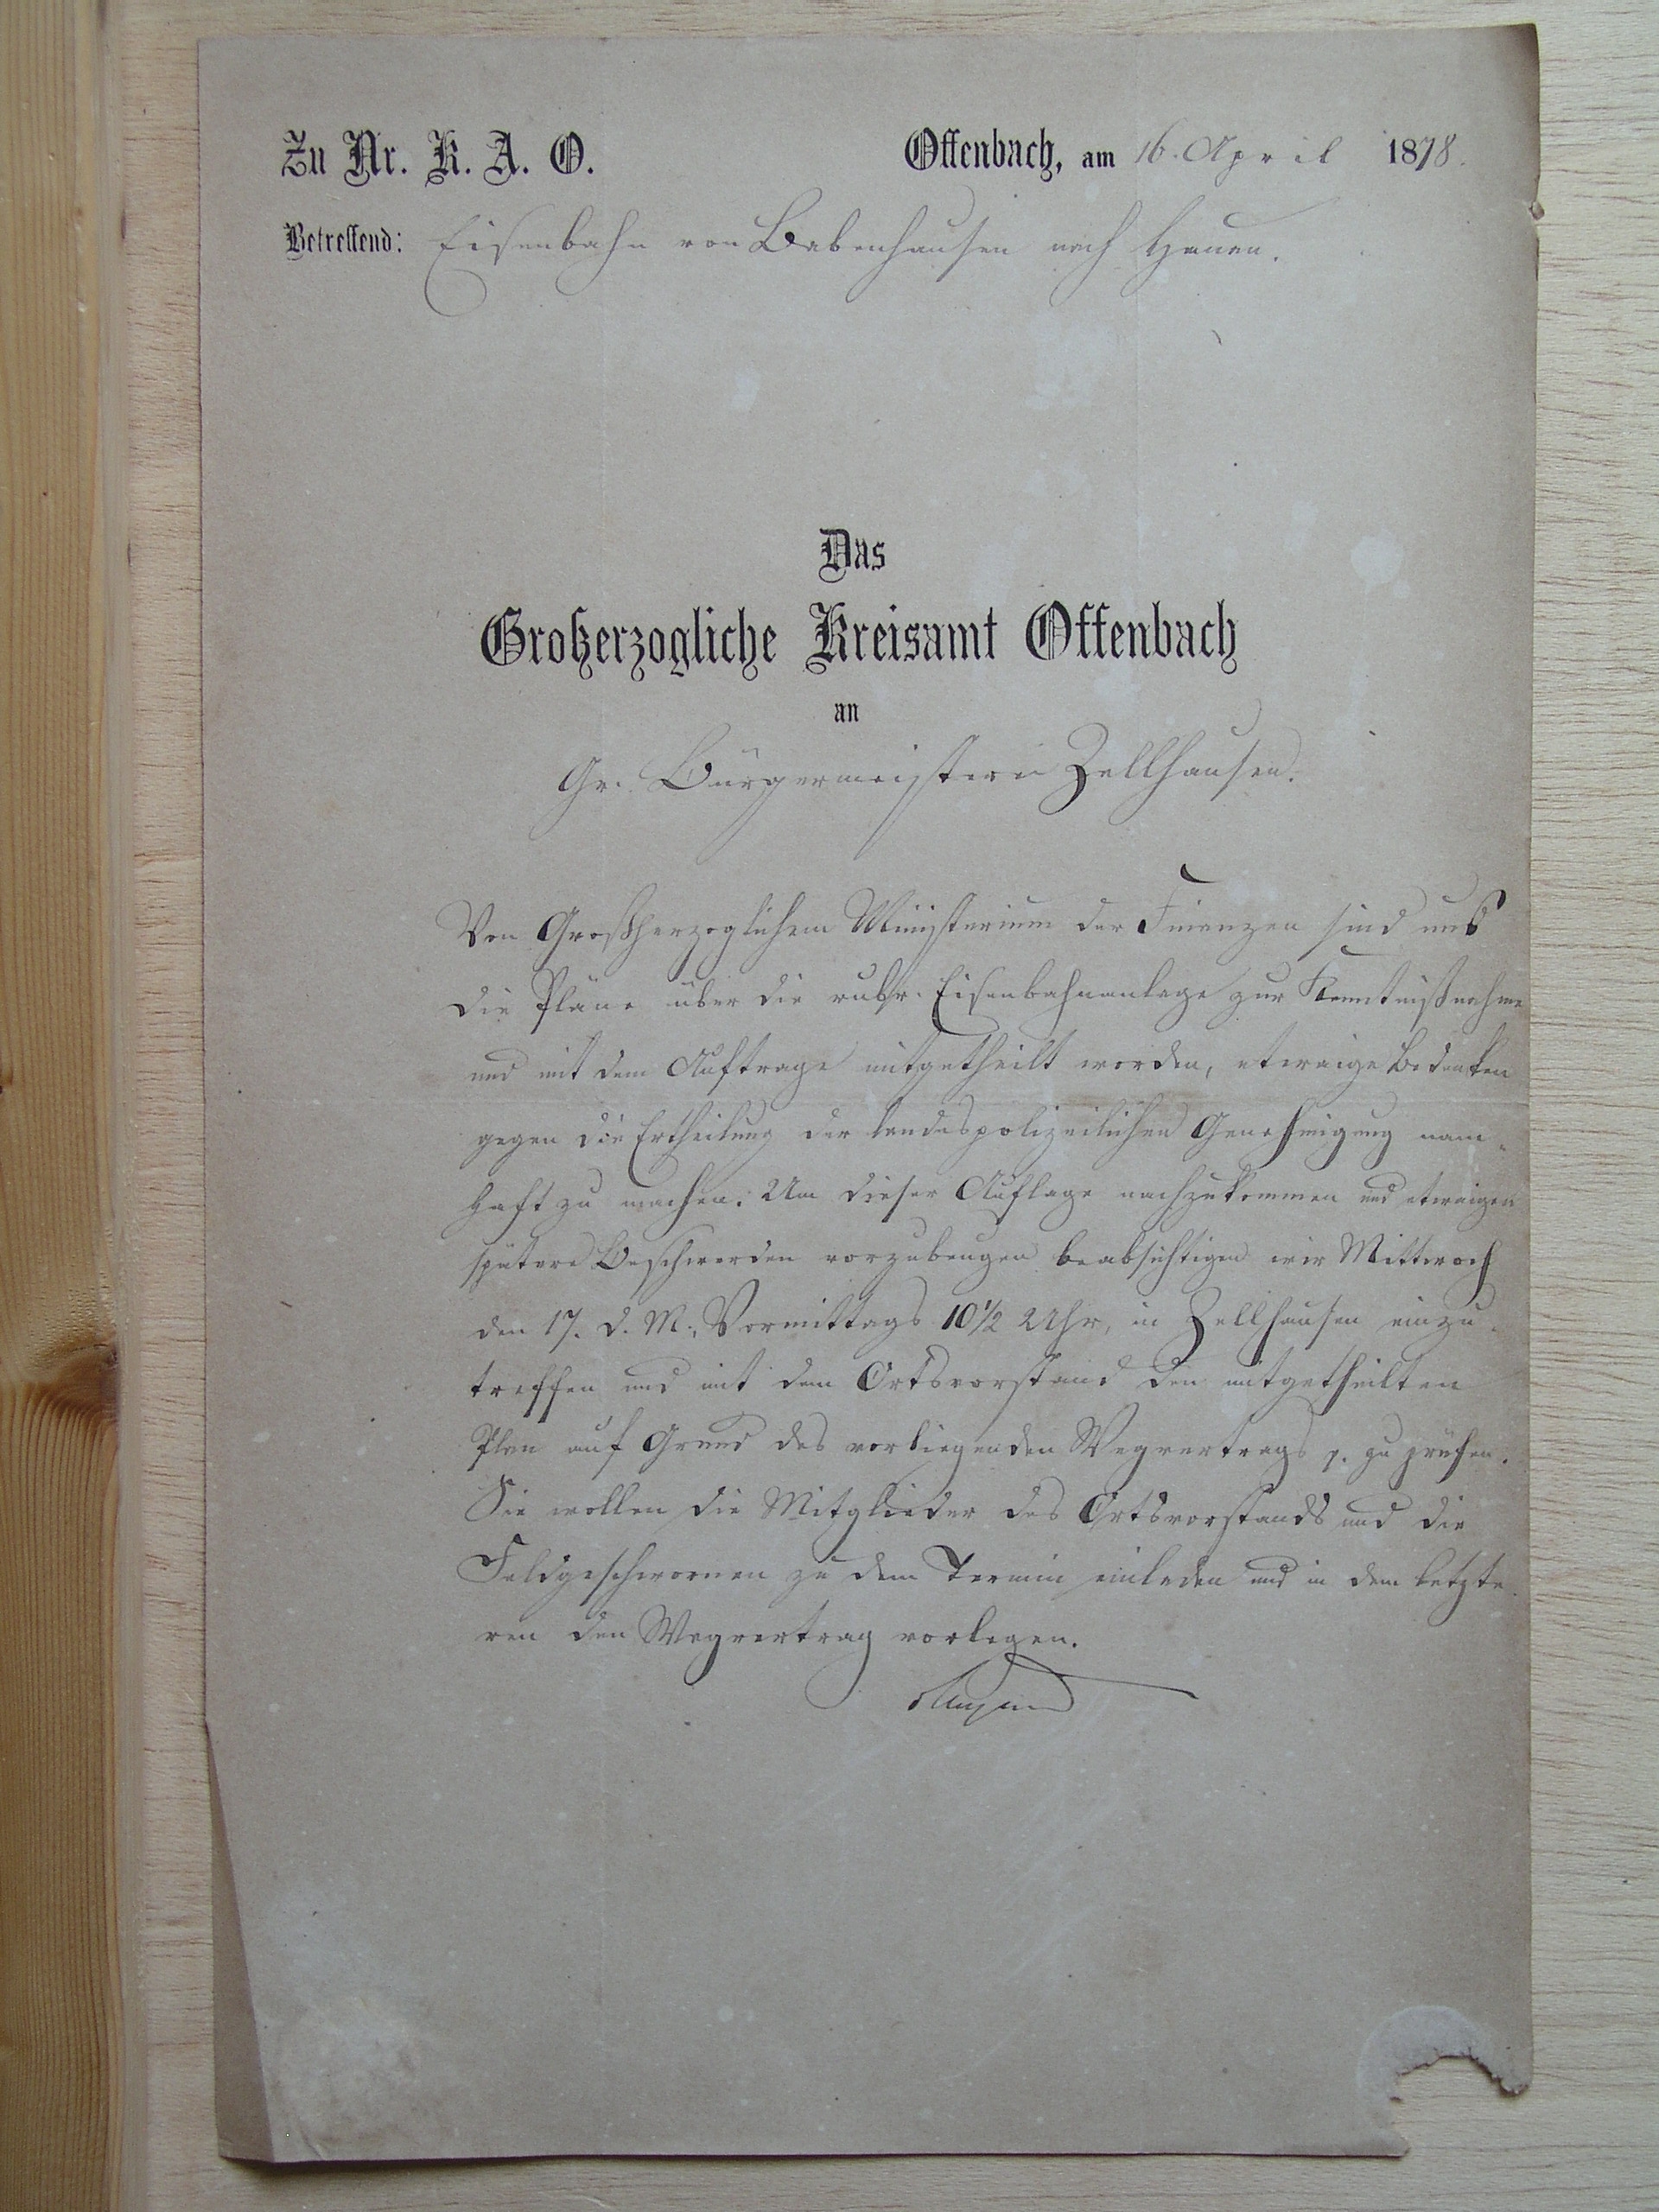 Zu Nr. K. A. O. Offenbach, am 16. April 1878.
Betreffend: Eisenbahn von Babenhausen nach Hanau.
Das
Großherzogliche Kreisamt Offenbach
an
Gr. Bürgermeisterei Zellhausen.
Von Großherzoglichem Ministerium der Finanzen sind uns
die Pläne über die rubr. Eisenbahnanlage zur Kenntnißnahme
und mit dem Auftrage mitgetheilt worden, etwaige Bedenken
gegen die Ertheilung der landespolizeilichen Genehmigung nam-
haft zu machen. Um dieser Auflage nachzukommen und etwaigen
spätere Beschwerden vorzubeugen beabsichtigen wir Mittwoch
den 17. d. M., Vormittags 10 1/2 Uhr, in Zellhausen einzu-
treffen und mit dem Ortsvorstand den mitgetheilten
Plan auf Grund des vorliegenden Wegvertrags zu prüfen.
Sie wollen die Mitglieder des Ortsvorstands und die
Feldgeschwornen zu dem Termin einladen und in dem letzte-
ren den Wegvertrag vorlegen.